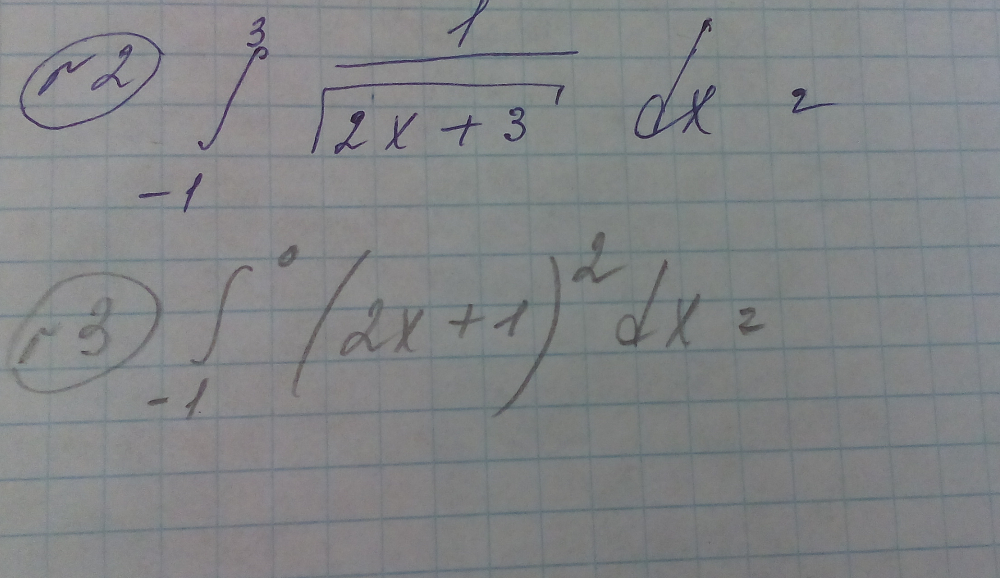 №2 ∫_{-1}^{3} \frac{1}{\sqrt{2x+3}} dx =
№3 ∫_{-1}^{0} (2x+1)^2 dx =